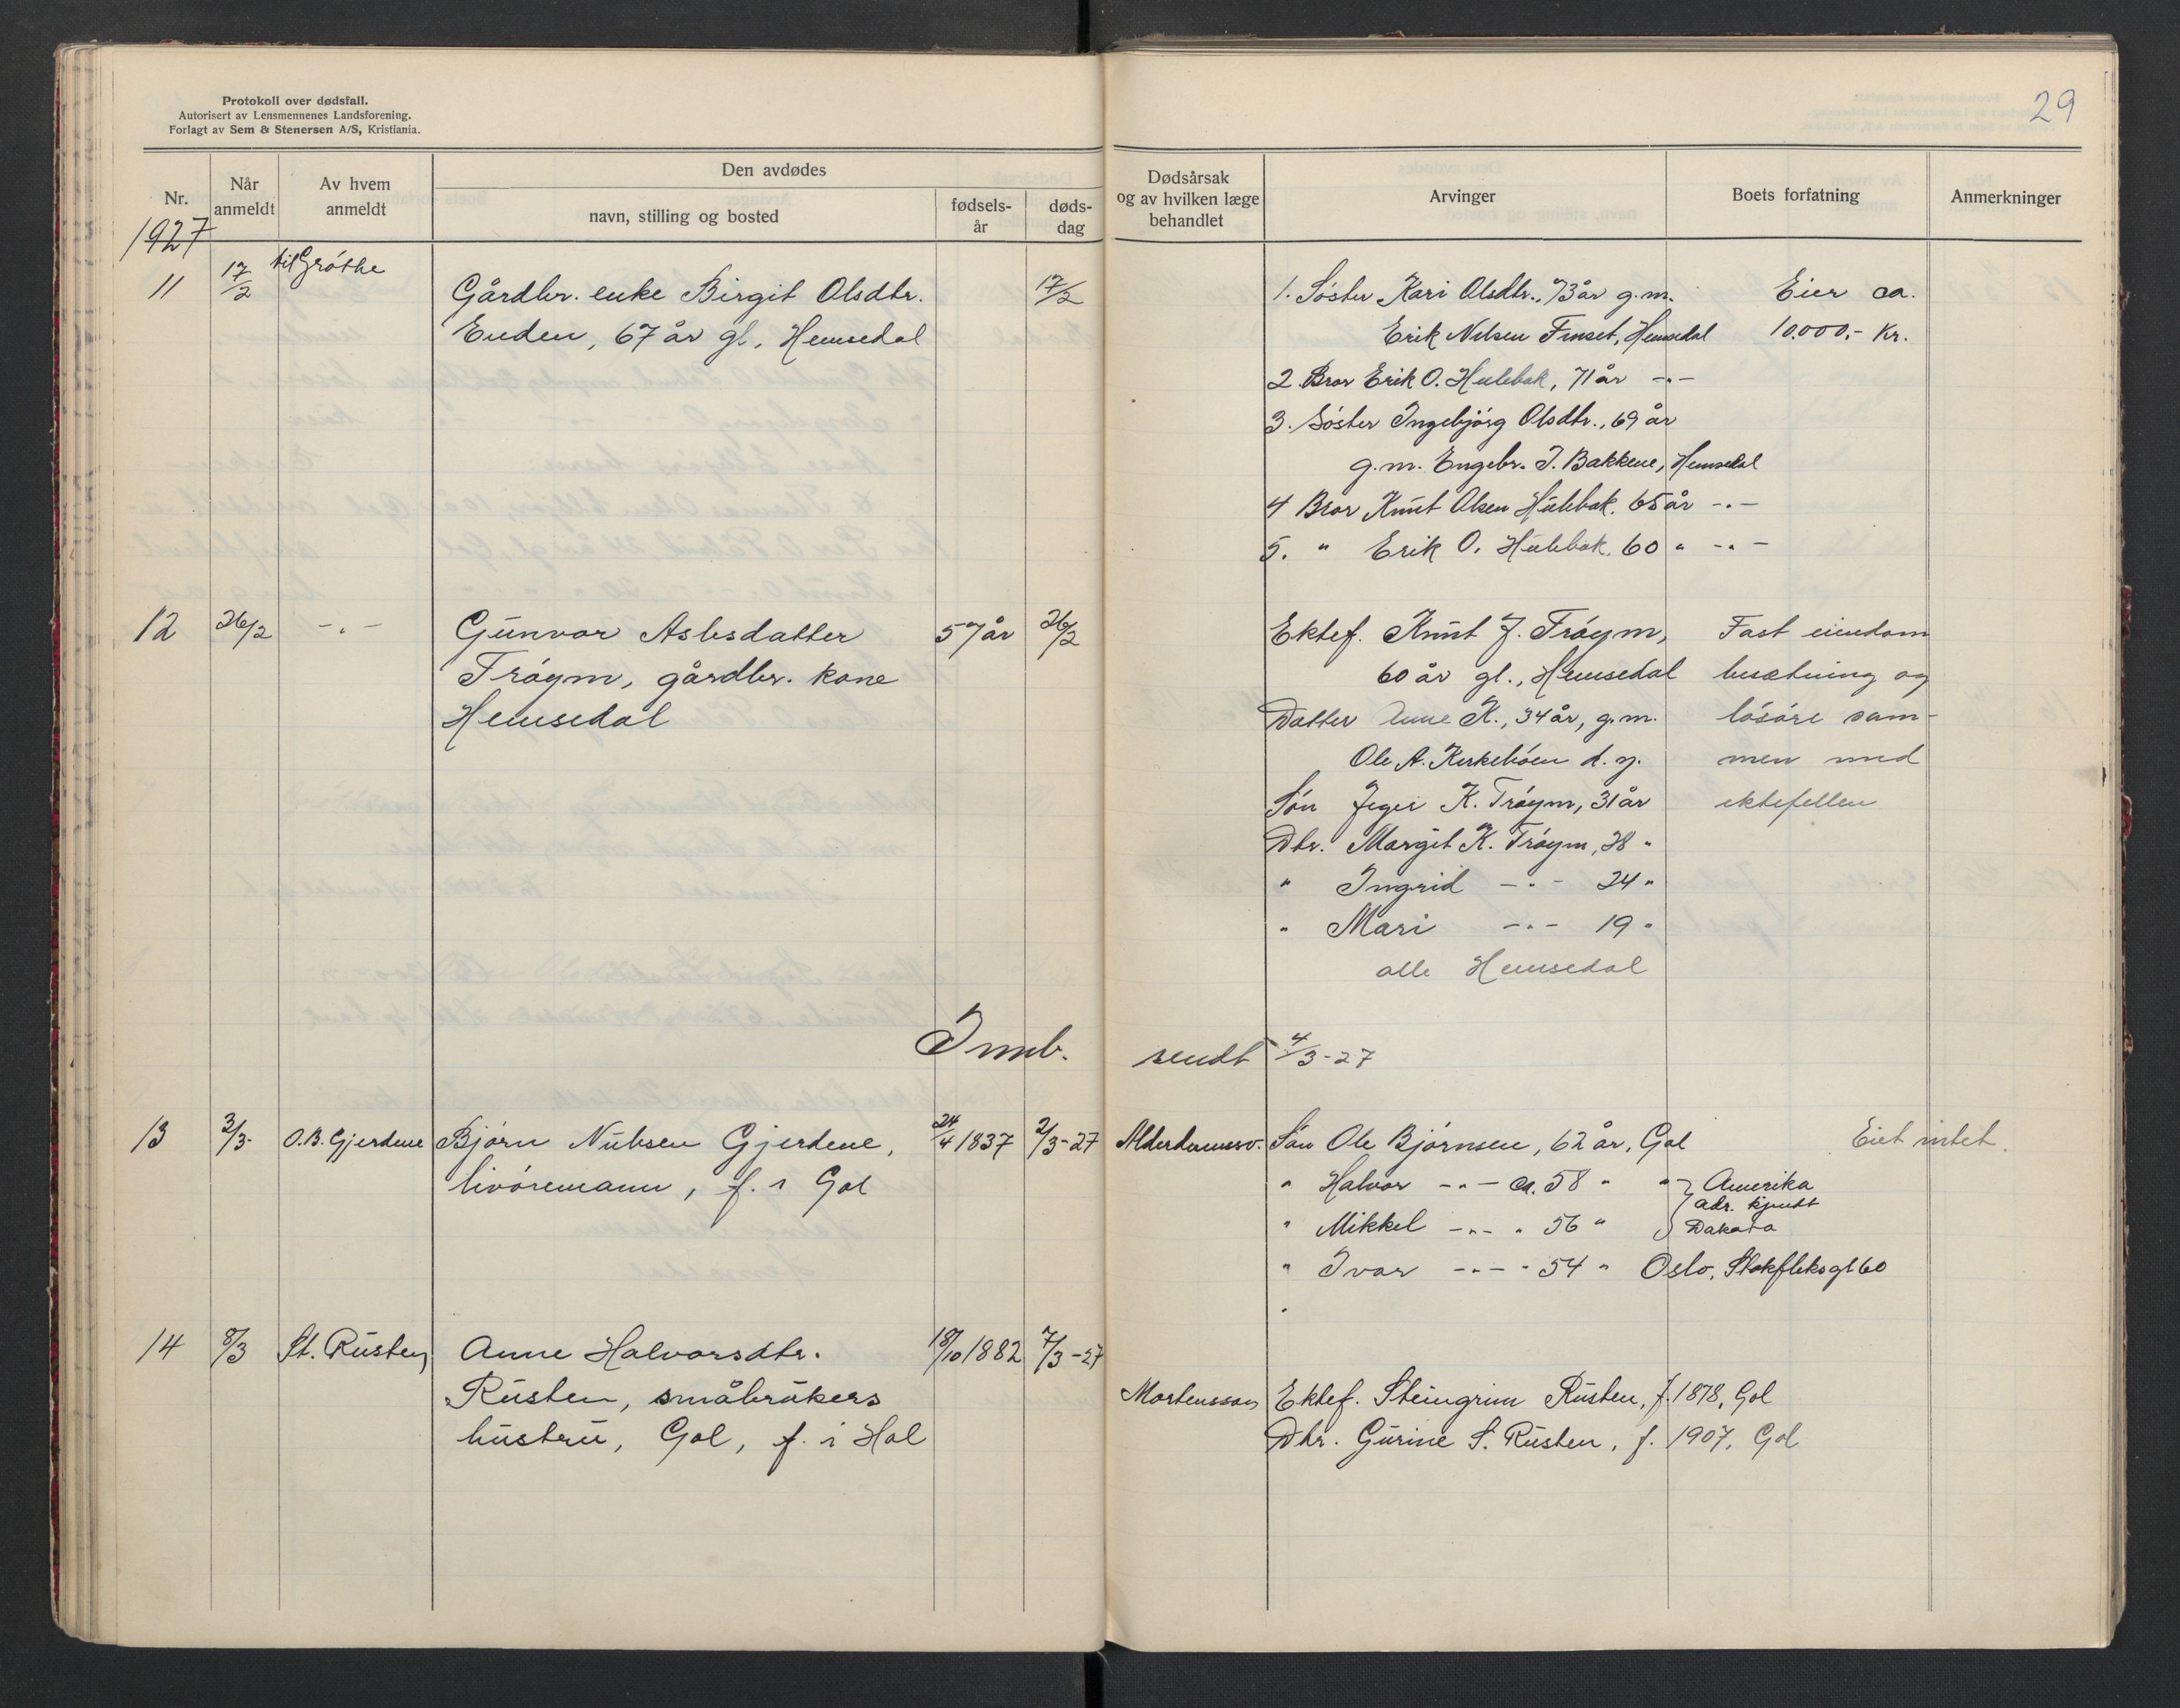 Protokoll over dødsfall.
Autorisert av Lensmennenes Landsforening.
Forlagt av Sem & Stenersen A/S, Kristiania.
29
Nr.
Når anmeldt
Av hvem anmeldt
Den avdødes
navn, stilling og bosted
fødsels-år
døds-dag
Dødsårsak og av hvilken læge behandlet
Arvinger
Boets forfatning
Anmerkninger
1927
11 17/2 til Grøthe Gårdbr. enke Birgit Olsdtr. 17/2
Enden, 67 år gl, Hemsedal
1. Søster Kari Olsdtr., 73 år g.m. Eier ca.
Erik Nilsen Finset, Hemsedal 10.000,- Kr.
2. Bror Erik O. Hulebak, 71 år -"-
3. Søster Ingebjørg Olsdtr., 69 år
g.m. Engebr. T. Bakkene, Hemsedal
4 Bror Knut Olsen Hulebak. 65 år -"-
5. " Erik O. Hulebak. 60 " -"-
12 26/2 -"- Gunvor Aslesdatter 57 år 26/2
Trøym, gårdbr. kone
Hemsedal
Ektef. Knut J. Trøym, Fast eiendom
60 år gl., Hemsedal besætning og
Datter Anne K., 34 år, g.m. løsøre sam-
Ole A. Kirkebøen d.y. men med
Søn K. Trøym, 31 år ektefellen
Dtr. Margit K. Trøym, 28 "
" Ingrid -"- 24 "
" Mari -"- 19 "
alle Hemsedal
Innb. sendt 4/3-27
13 3/3- O.B. Gjerdene Bjørn Nubsen Gjerdene, 24/4 1837 2/3-27 Alderdomssv.
livøremann, f. i Gol
Søn Ole Bjørnsen, 62 år, Gol Eiet intet.
" Halvor -"- ca. 58 " " } Amerika
adr. kjendt
" Mikkel -"- " 56 " } Dakota
" Ivar -"- " 54 " Oslo, gt 60
"
14 8/3 St. Rusten Anne Halvorsdtr. 18/10 1882 7/3-27
Rusten, småbrukers
hustru, Gol, f. i Hol
Mortensson Ektef. Steingrim Rusten, f. 1878, Gol
Dtr. Gurine S. Rusten, f. 1907, Gol